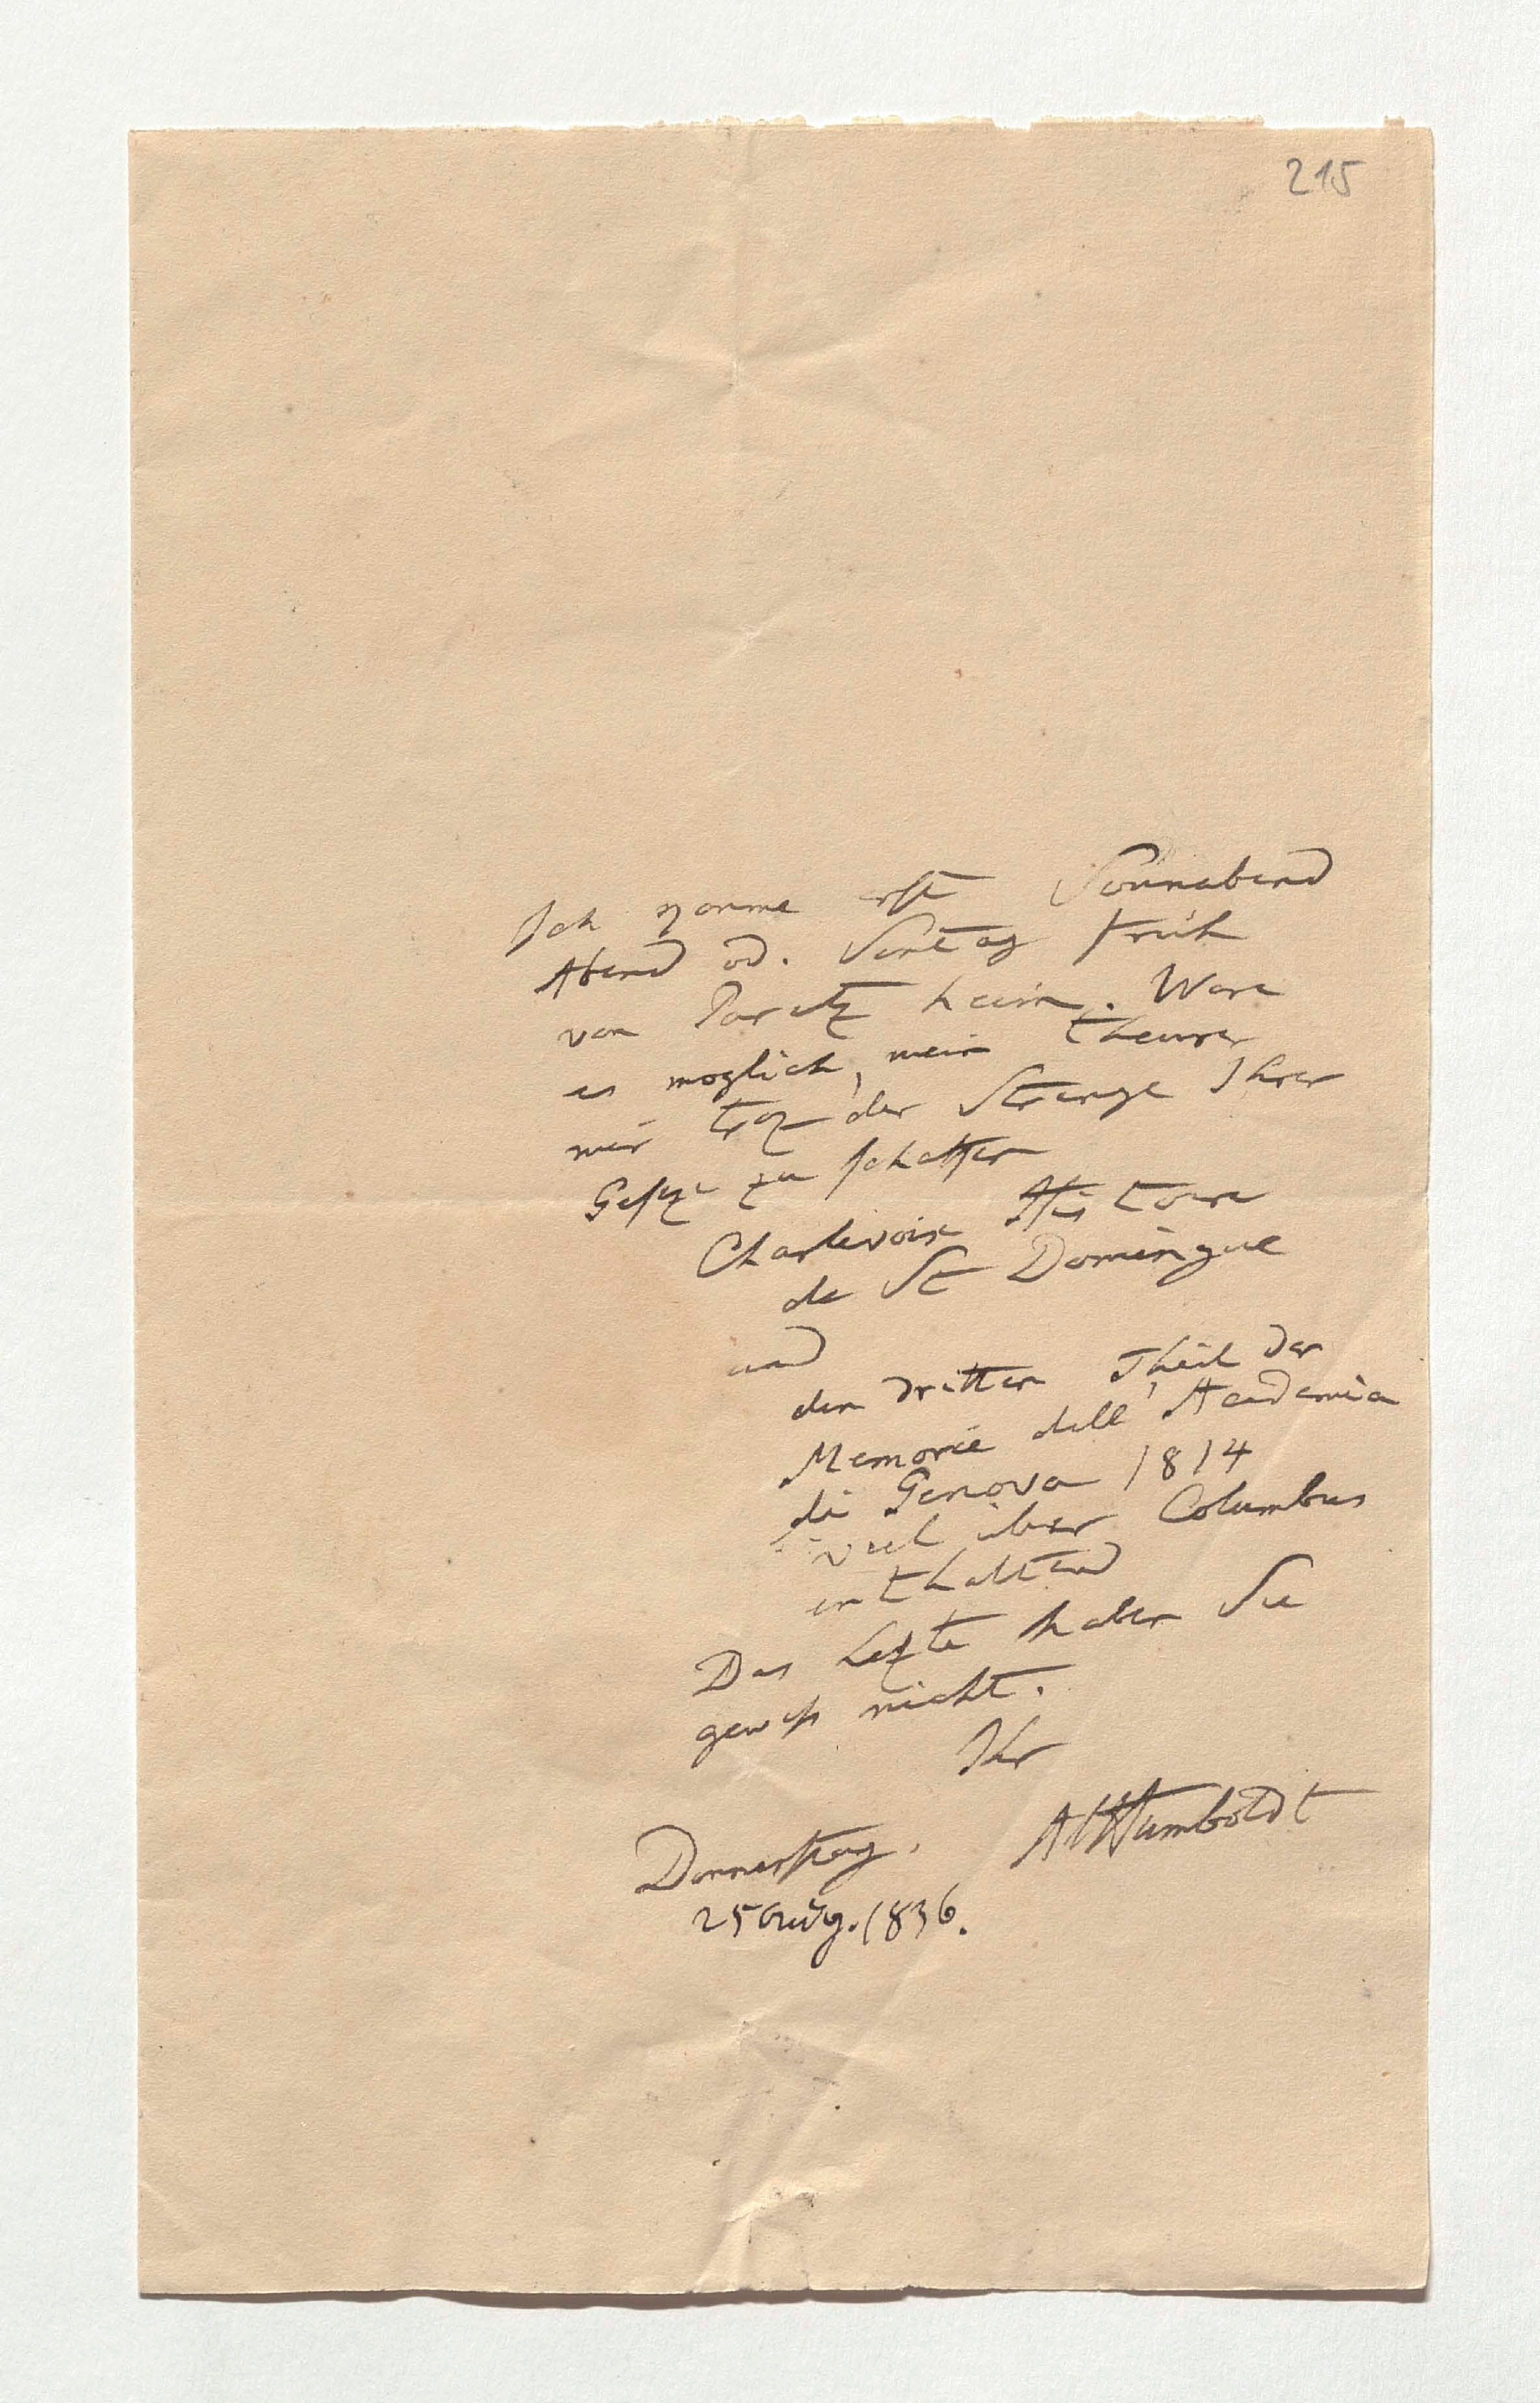 215
Ich komme erst Sonnabend
Abend od. Sontag früh
von Paretz heim. Wäre
es moglich, mein theurer
mir troz der Strenge Ihrer
Geseze zu schaffen
Charlevoix Histoire
de St Domingue
und
den dritten Theil der
Memorie dell' Academia
di Genova 1814
viel über Columbus
enthaltend
Das Lezte haben Sie
gewiss nicht.
Ihr
AlHumboldt
Donnerstag.
25 Aug. 1836.